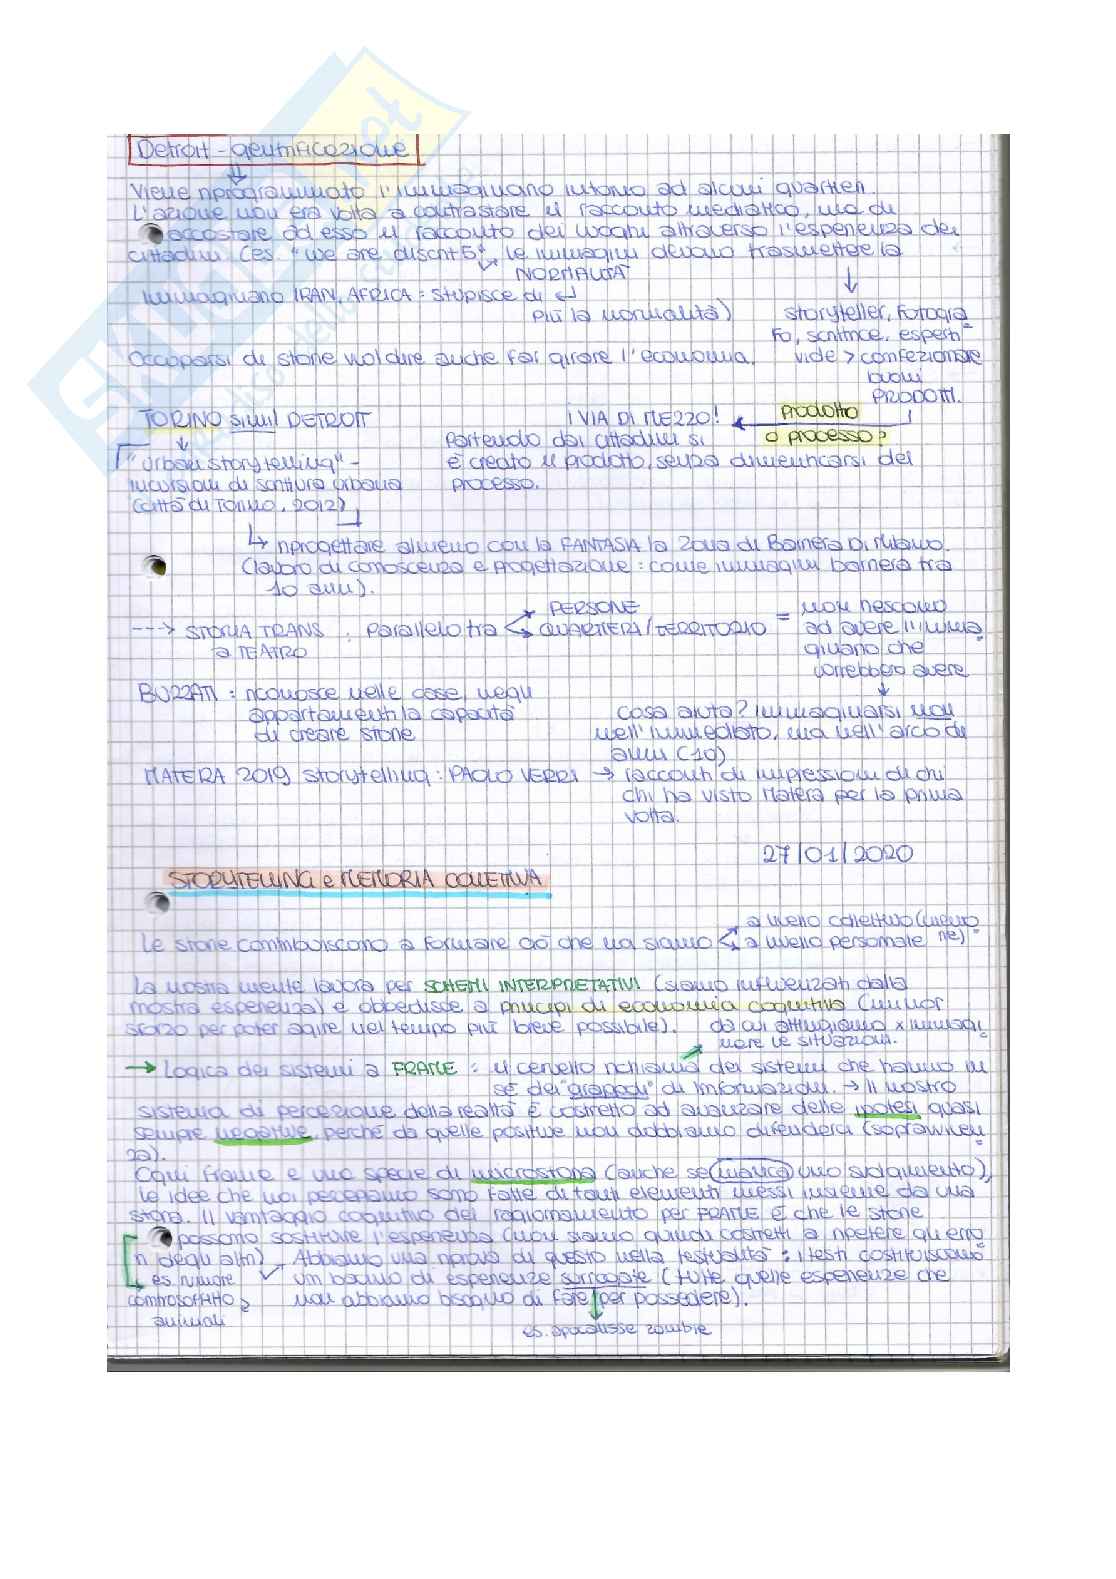 Detroit - gentrificazione
Viene riprogrammato l'immaginario intorno ad alcuni quartieri.
L'azione non era volta a contrastare il racconto mediatico, ma di
accostare ad esso il racconto dei luoghi attraverso l'esperienza dei
cittadini (es. "we are discrit 5" le immagini devono trasmettere la
NORMALITÀ
immaginario IRAN, AFRICA : stupisce di
più la normalità)
storyteller, fotogra
fo, scrittrice, esperti
vide > confezionare
buoni
PRODOTTI.
Occuparsi di storie vuol dire anche far girare l'economia.
TORINO simil DETROIT
¡VIA DI MEZZO!
Prodotto
o processo?
"urban storytelling" -
incursioni di scrittura urbana
(città di Torino, 2012)
Partendo dai cittadini si
è creato il prodotto, senza dimenticarsi del
processo.
riprogettare almeno con la FANTASIA la zona di Barriera Di Milano.
(lavoro di conoscenza e progettazione : come immagini barriera tra
10 anni).
---> STORIA TRANS : parallelo tra
a TEATRO
PERSONE
QUARTIERI/TERRITORIO
= non riescono
ad avere l'imma
ginario che
vorrebbero avere
BUZZATI : riconosce nelle case, negli
appartamenti la capacità
di creare storie
Cosa aiuta? Immaginarsi non
nell'immediato, ma nell'arco di
anni (10)
MATERA 2019 storytelling : PAOLO VERRI → racconti di impressioni di chi
chi ha visto Matera per la prima
volta.
27/01/2020
STORYTELLING e MEMORIA COLLETTIVA
Le storie contribuiscono a formare ciò che noi siamo
a livello collettivo (
a livello personale
La nostra mente lavora per SCHEMI INTERPRETATIVI (siamo influenzati dalla
nostra esperienza) e obbedisce a principi di economia cognitiva (minor
sforzo per poter agire nel tempo più breve possibile).
da cui attingiamo x immagi
nare le situazioni.
→ Logica dei sistemi a FRAME : il cervello richiama dei sistemi che hanno in
sé dei "grappoli" di informazioni. → Il nostro
sistema di percezione della realtà è costretto ad avanzare delle ipotesi quasi
sempre negative perché da quelle positive non dobbiamo difenderci (sopravviven
za).
Ogni frame è una specie di microstoria (anche se manca uno svolgimento),
le idee che noi percepiamo sono fatte di tanti elementi messi insieme da una
storia. Il vantaggio cognitivo del ragionamento per FRAME è che le storie
possono sostituire l'esperienza (non siamo quindi costretti a ripetere gli erro
ri degli altri)
Abbiamo una riprova di questo nella testualità : i testi costituiscono
un bacino di esperienze surrogate (tutte quelle esperienze che
non abbiamo bisogno di fare per possedere).
es. rumore
controsoffitto
animali
es. apocalisse zombie